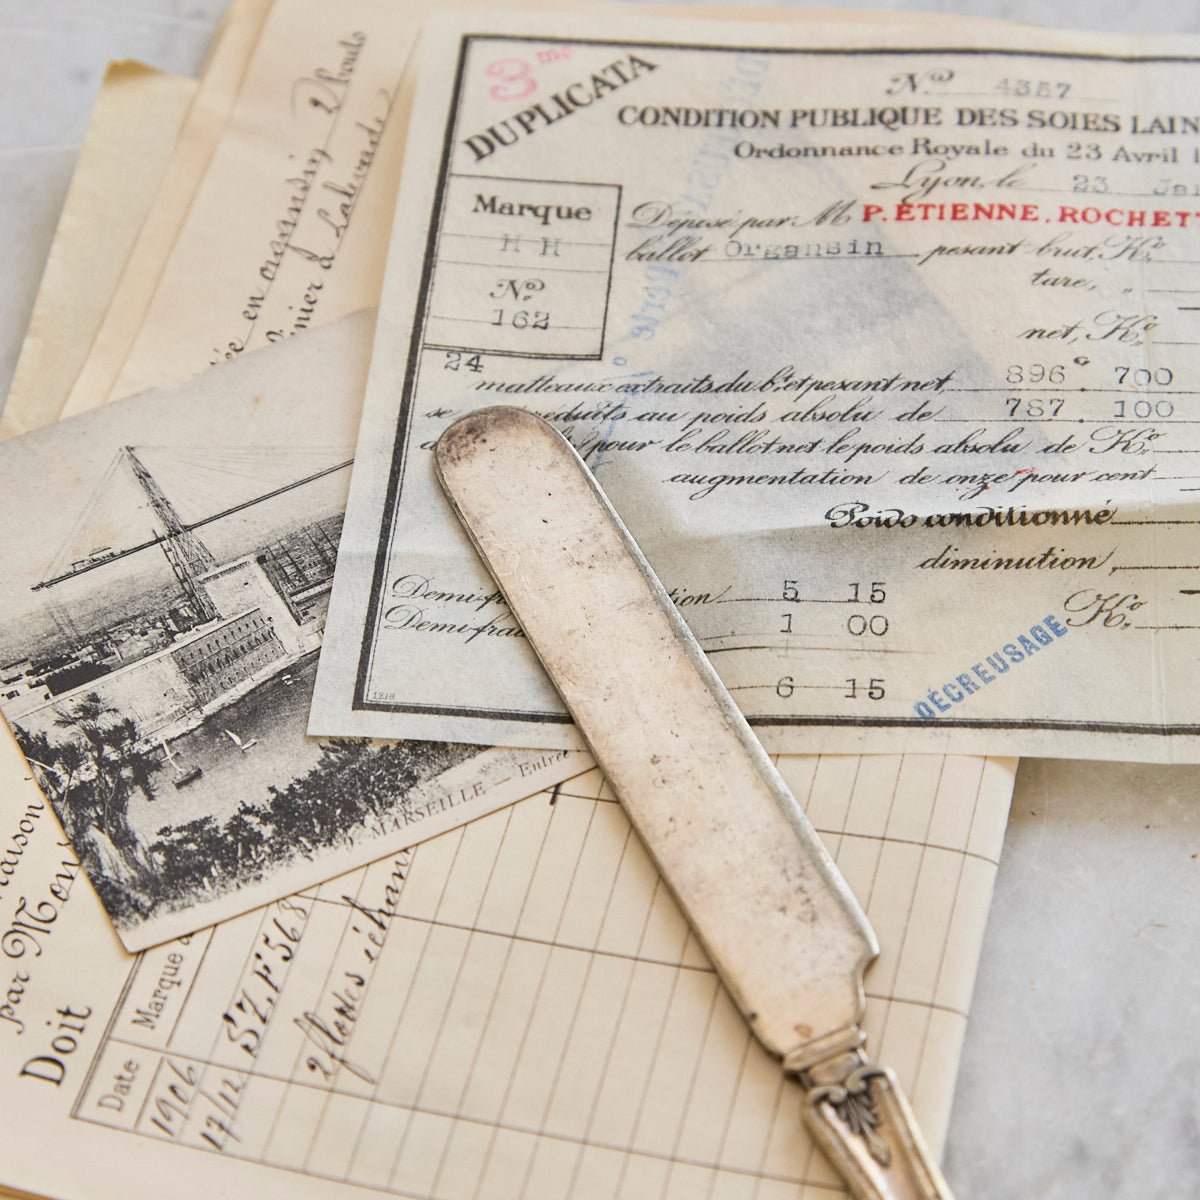 3 me
DUPLICATA
No 4357
CONDITION PUBLIQUE DES SOIES LAIN
Ordonnance Royale du 23 Avril 1
Lyon, le 23 Jan
Marque
H H
No
162
Déposé par M P. ETIENNE, ROCHETT
ballot Organsin pesant brut, Ko
tare, "
net, Ko
24
matteaux extraits du bt et pesant net, 896 G 700
se réduits au poids absolu de 787 . 100
pour le ballot net le poids absolu de Ko
augmentation de onze pour cent
Poids conditionné
diminution,
Ko
Demi-fr tion 5 15
Demi-frai 1 00
6 15
DÉCREUSAGE
1218
en organsin 2 bouts
à Labévade
MARSEILLE — Entrée
Maison
par Mon
Doit
Date
Marque
1906
17/12
SZF 568
2 flottes échan